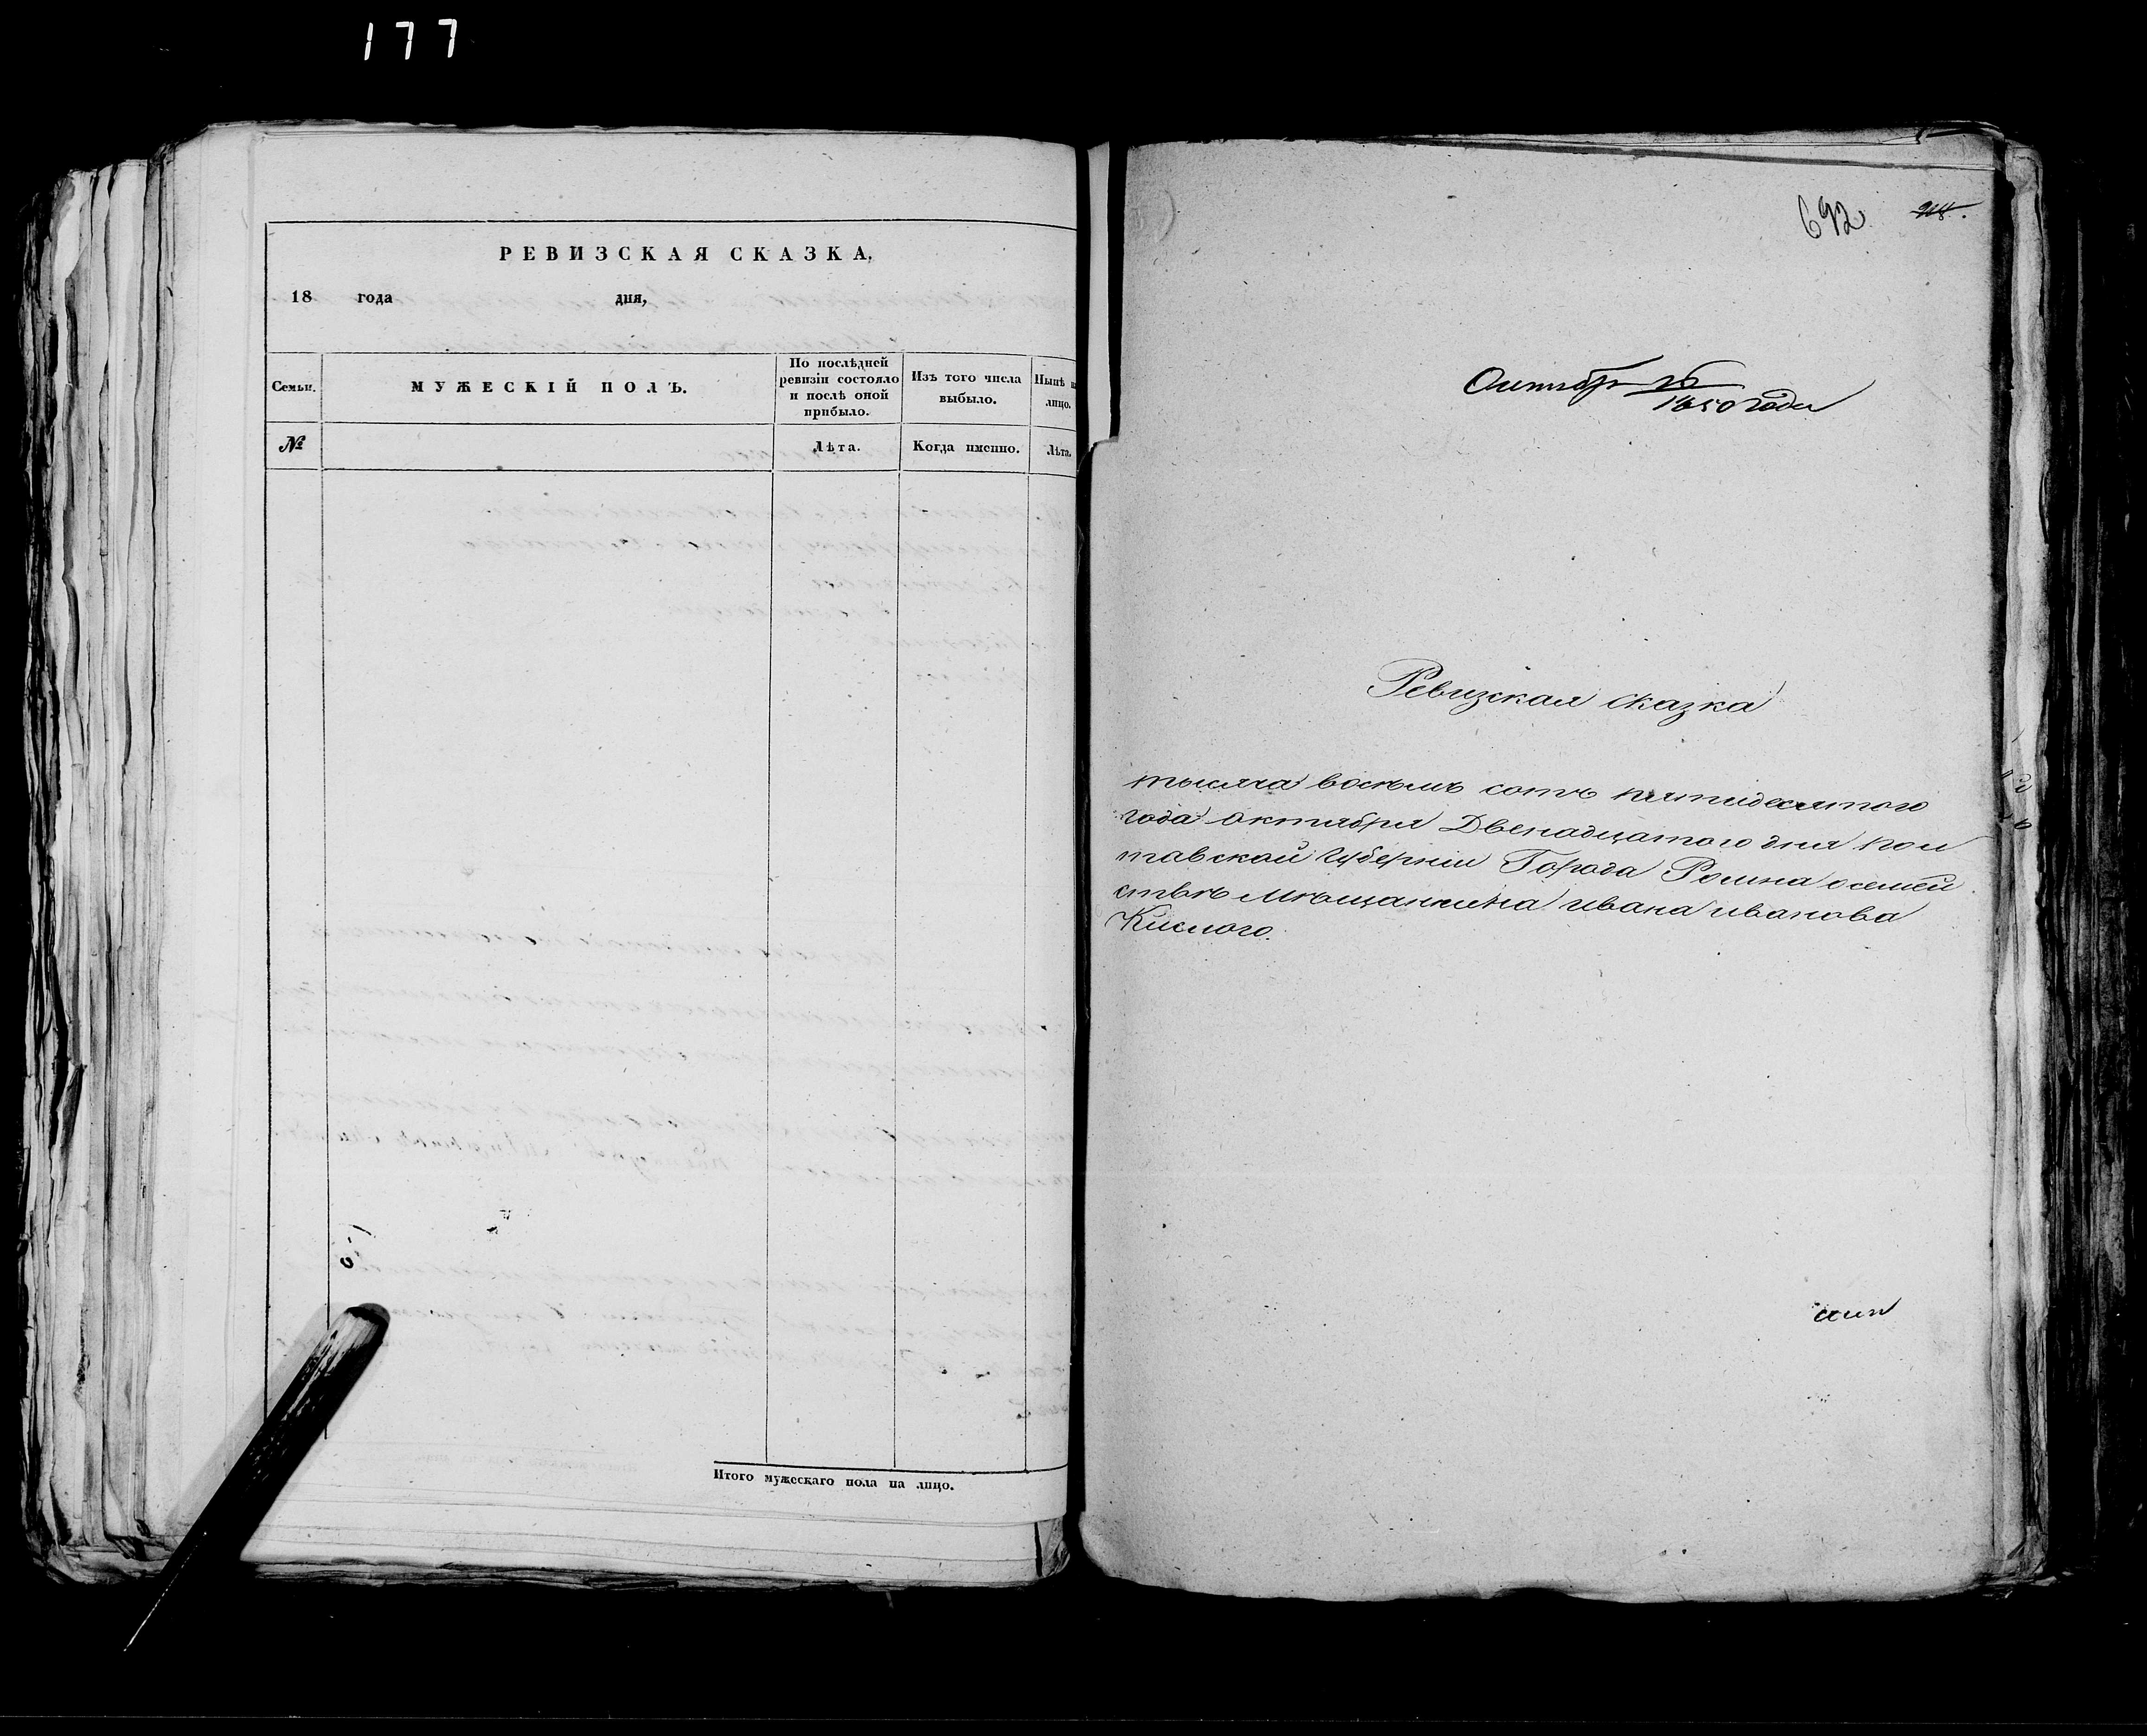 177
РЕВИЗСКАЯ СКАЗКА.
18 года дня,
Семьи.
МУЖЕСКІЙ ПОЛЪ.
По послѣдней ревизіи состояло и послѣ оной прибыло.
Изъ того числа выбыло.
Нынѣ на лицо.
№
Лѣта.
Когда именно.
Лѣта.
Итого мужескаго пола на лицо.
692
1850 года
Ревизская сказка
тысяча восѣмь сотъ пятидесятого
года октября Двенадцатого дня Пол
тавской Губерніи Города Ромна о семей
ствѣ Мѣщанина Ивана Иванова
Кислого.